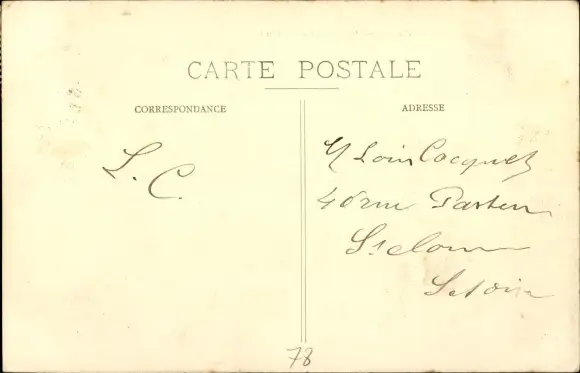 CARTE POSTALE
CORRESPONDANCE
ADRESSE
L. C.
M Louis Cocquet
40 rue Pasteur
St cloud
S et Oise
78